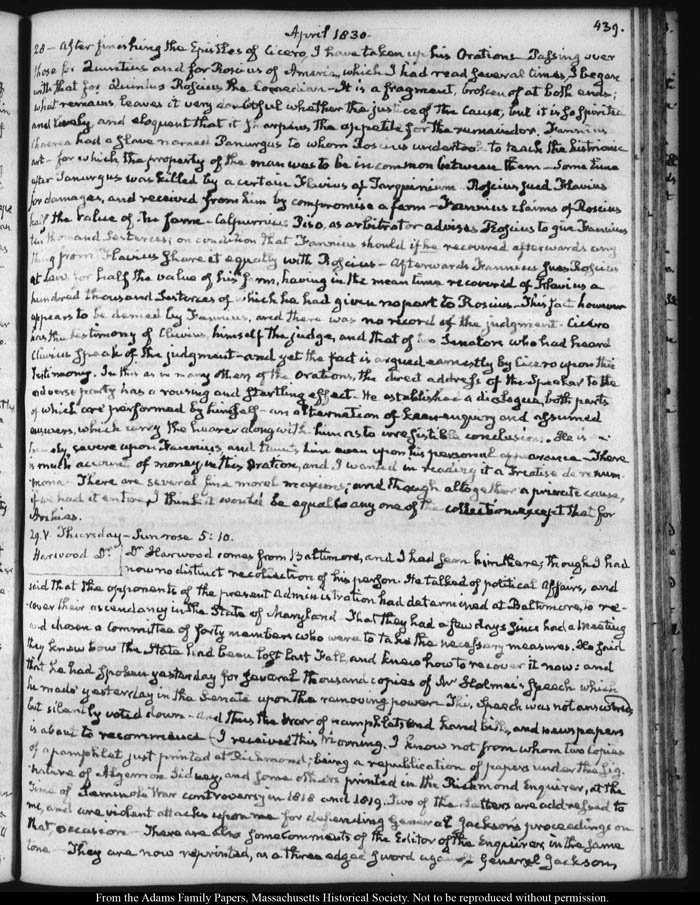 April 1830.
439.
28 - After finishing the Epistles of Cicero, I have taken up his Orations - Passing over
those for Quintius and for Roscius of Ameria, which I had read several times, I began
with that for Quintus Roscius the Comedian - It is a fragment, broken off at both ends;
what remains leaves it very doubtful whether the justice of the cause, but it is so spirited
and lively, and eloquent that it sharpens the appetite for the remainder. Fannius
Chaerea had a slave named Panurgus to whom Roscius undertook to teach the histrionic
art - for which the property of the man was to be in common between them - Some time
after Panurgus was killed by a certain Flavius of Tarquinium - Roscius sued Flavius
for damages, and received from him by compromise a farm - Fannius claims of Roscius
half the value of the farm - Calpurnius Piso, as arbitrator advises Roscius to give Fannius
ten thousand Sesterces; on condition that Fannius should if he recovered afterwards any
thing from Flavius share it equally with Roscius - Afterwards Fannius sues Roscius
at Law for half the value of his farm, having in the mean time recovered of Flavius a
hundred thousand Sesterces of which he had given no part to Roscius - This fact however
appears to be denied by Fannius, and there was no record of the judgment - Cicero
has the testimony of Cluvius, himself the judge, and that of two Senators who had heard
Cluvius speak of the judgment - and yet the fact is argued earnestly by Cicero upon this
testimony. In this as in many others of the Orations, the direct address of the Speaker to the
adverse party has a rousing and startling effect - He establishes a dialogue, both parts
of which are performed by himself - an alternation of keen enquiry and assumed
answers, which carry the hearer along with him as to irresistible conclusions. He is
severe upon Fannius, and taunts him even upon his personal appearance - There
is much account of money in this Oration, and I wanted in reading it a Treatise de re num-
maria - There are several fine moral maxims; and though altogether a private cause,
if we had it entire, I think it would be equal to any one of the collection except that for
Archias.
29. V. Thursday - Sun rose 5:10.
Harwood Dr.
Dr. Harwood comes from Baltimore, and I had seen him there, though I had
now no distinct recollection of his person. He talked of political affairs, and
said that the opponents of the present Administration had determined at Baltimore, to re-
cover their ascendancy in the State of Maryland - That they had a few days since had a meeting
and chosen a Committee of forty members who were to take the necessary measures. He said
they knew how the State had been lost last Fall, and knew how to recover it now: and
that he had spoken yesterday for several thousand copies of Mr Holmes's Speech which
he made yesterday in the Senate upon the removing power. This Speech was not answered
but silently voted down - and thus the War of pamphlets and hand bills, and newspapers
is about to recommence. I received this Morning, I know not from whom two copies
of a pamphlet just printed at Richmond; being a republication of papers under the sig-
nature of Algernon Sidney, and some others printed in the Richmond Enquirer, at the
time of Seminole War controversy in 1818 and 1819. Two of the Letters are addressed to
me, and are violent attacks upon me for defending General Jackson's proceedings on
that occasion - There are also some Comments of the Editor of the Enquirer, in the same
tone - They are now reprinted, as a three edged sword against General Jackson,
From the Adams Family Papers, Massachusetts Historical Society. Not to be reproduced without permission.